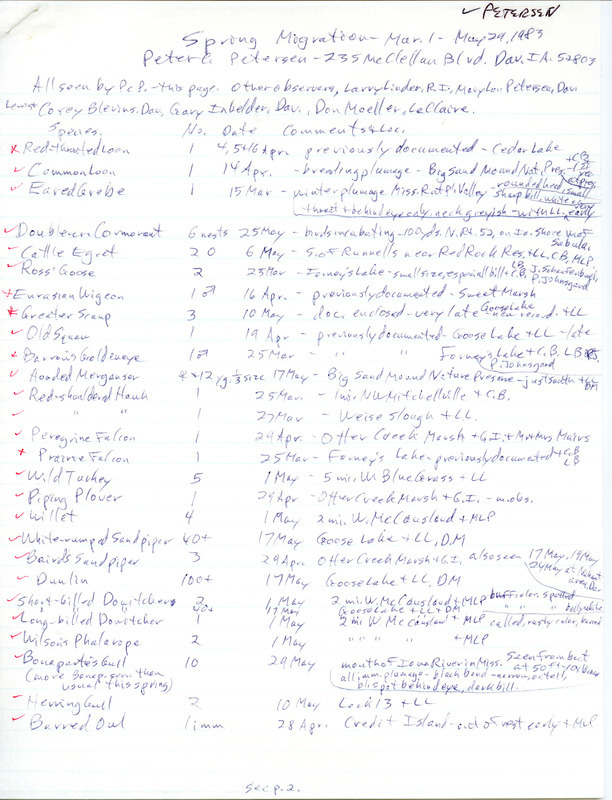 ✓ PETERSEN
Spring Migration - Mar. 1 - May 29, 1983
Peter C. Petersen - 235 McClellan Blvd. Dav. IA. 52803
All seen by PCP - this page. Other observers, Larry Linder, R.I., Mary Lou Petersen, Dav
Corey Blevins, Dav, Gary Inhelder, Dav., Don Moeller, LeClaire.
Species. No. Date Comments & Loc.
Red-throated Loon 1 4, 5 + 16 Apr. previously documented - Cedar Lake
✓ Common Loon 1 14 Apr. - breeding plumage - Big Sand Mound Nat. Pres.
✓ Eared Grebe 1 15 Mar - winter plumage Miss. R. at Pl. Valley - rounded head, small
sharp bill, white on
throat + behind eye only, neck greyish - with LL, early
✓ Double-cr. Cormorant 6 nests 25 May - birds incubating - 100 yds. N. Rt. 52, on Ia. shore W of
Sabula
✓ Cattle Egret 20 6 May - S. of Runnells near Red Rock Res. + LL, CB, MLP
✓ Ross' Goose 2 25 Mar - Forney's Lake - small size, especial bill + C.B., P. Johnsgard
Eurasian Wigeon 1 ♂ 16 Apr. previously documented - Sweet Marsh
Greater Scaup 3 10 May - doc. enclosed - very late - new record. + LL
Goose Lake
✓ Old Squaw 1 19 Apr - previously documented - Goose Lake + LL - late
Barrow's Goldeneye 1 ♂ 25 Mar - " " Forney's Lake + C.B. LB
P. Johnsgard
✓ Hooded Merganser ♀ + 12 yg. 1/3 size 17 May - Big Sand Mound Nature Preserve - just south + LL
DM
✓ Red-shouldered Hawk 1 25 Mar. - 1 mi. NW Mitchellville + C.B.
✓ " " 1 27 Mar - Weise Slough + LL.
✓ Peregrine Falcon 1 29 Apr. - Otter Creek Marsh + G.I. + Mr + Mrs. Mairs
Prairie Falcon 1 25 Mar - Forney's Lake - previously documented + C.B
LB
✓ Wild Turkey 5 1 May - 5 mi. W. Blue Grass + LL
✓ Piping Plover 1 29 Apr - Otter Creek Marsh + G.I. - m.obs.
✓ Willet 4 1 May 2 mi. W. McCausland + MLP
✓ White-rumped Sandpiper 40+ 17 May Goose Lake + LL, DM
✓ Baird's Sandpiper 3 29 Apr. Otter Creek Marsh + G.I. also seen 17 May, 19 May
24 May at Nahant
area, Dav
✓ Dunlin 100+ 17 May Goose Lake + LL, DM
✓ Short-billed Dowitchers 2 1 May 2 mi. W. McCausland + MLP buff color, spotted
40+ 17 May Goose Lake + LL + DM " " " belly white
✓ Long-billed Dowitcher 1 1 May 2 mi W McCausland + MLP called, rusty color, barred
✓ Wilson's Phalarope 2 1 May " " " " + MLP
✓ Bonaparte's Gull 10 29 May mouth of Iowa River in Miss. Seen from boat
(more Bonap. seen than at 50 ft
usual this spring) all imm. plumage - black band - narrow, on tail,
bl. spot behind eye, dark bill.
✓ Herring Gull 2 10 May Lock 13 + LL
✓ Barred Owl 1 imm 28 Apr. Credit Island - out of nest early + MLP
see p. 2.